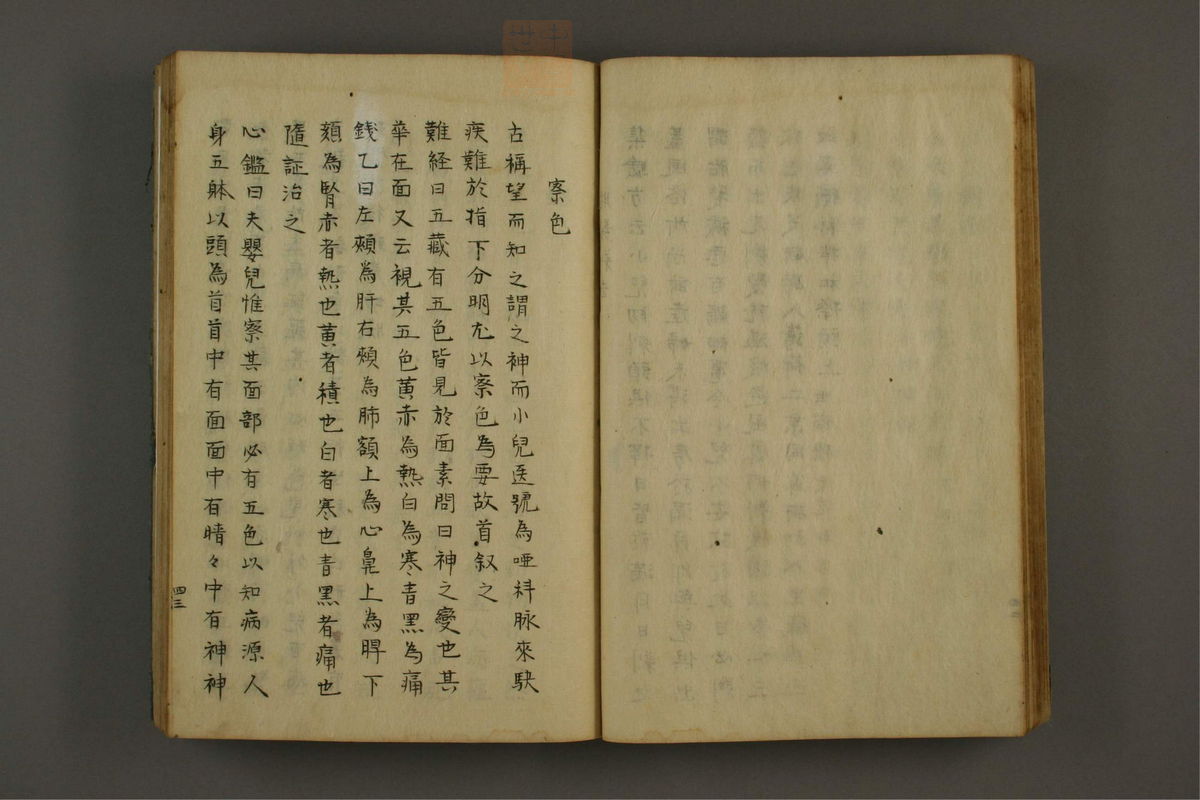 察色
古稱望而知之謂之神而小兒医號為啞科脉來駃
疾難於指下分明尤以察色為要故首叙之
難経曰五藏有五色皆見於面素問曰神之變也其
華在面又云視其五色黄赤為熱白為寒青黑為痛
錢乙曰左頰為肝右頰為肺額上為心鼻上為脾下
頦為腎赤者熱也黄者積也白者寒也青黑者痛也
隨証治之
心鑑曰夫嬰兒惟察其面部必有五色以知病源人
身五躰以頭為首首中有面面中有晴々中有神神
四三